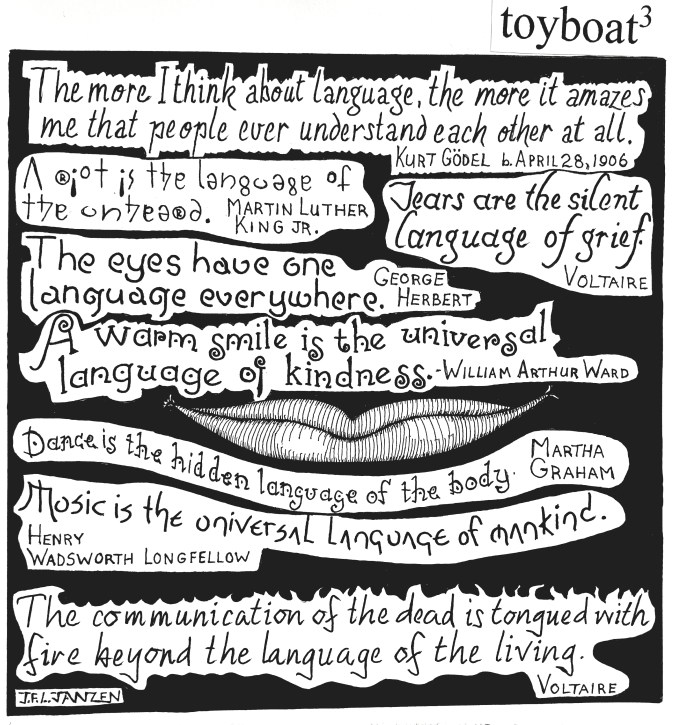 toyboat³
The more I think about language, the more it amazes
me that people ever understand each other at all.
KURT GÖDEL b. APRIL 28, 1906
A riot is the language of
the unheard. MARTIN LUTHER
KING JR.
Tears are the silent
language of grief.
VOLTAIRE
The eyes have one
language everywhere. GEORGE
HERBERT
A warm smile is the universal
language of kindness.-WILLIAM ARTHUR WARD
Dance is the hidden language of the body. MARTHA
GRAHAM
Music is the universal language of mankind.
HENRY
WADSWORTH LONGFELLOW
The communication of the dead is tongued with
fire beyond the language of the living.
VOLTAIRE
J.F.L. JANZEN